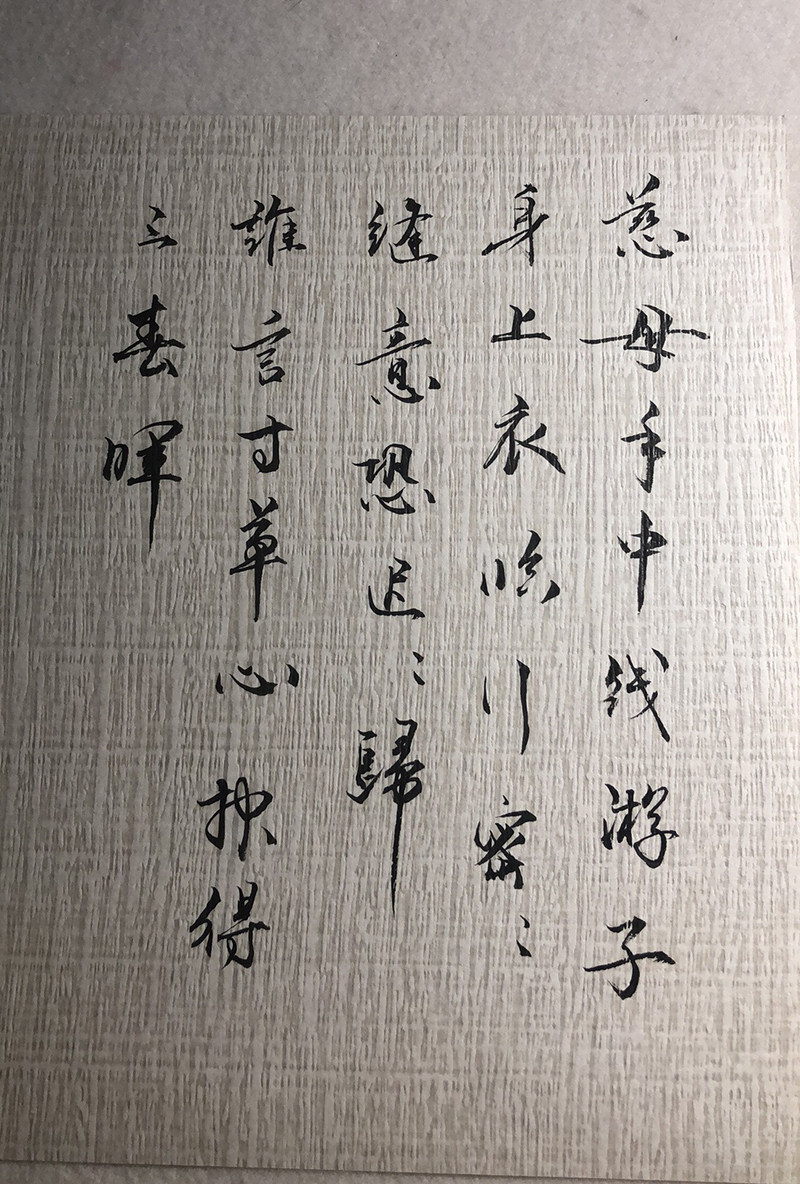 慈母手中线游子
身上衣临行密〻
缝意恐迟〻歸
誰言寸草心报得
三春暉